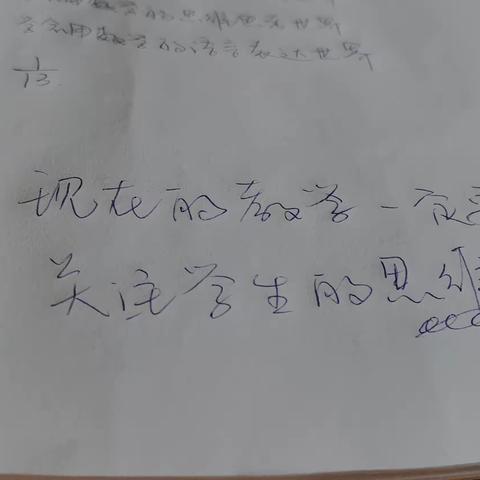 的思维思考世界
学会用数学的语言表达世界
1/13.
现在的教学一定
关注学生的思维